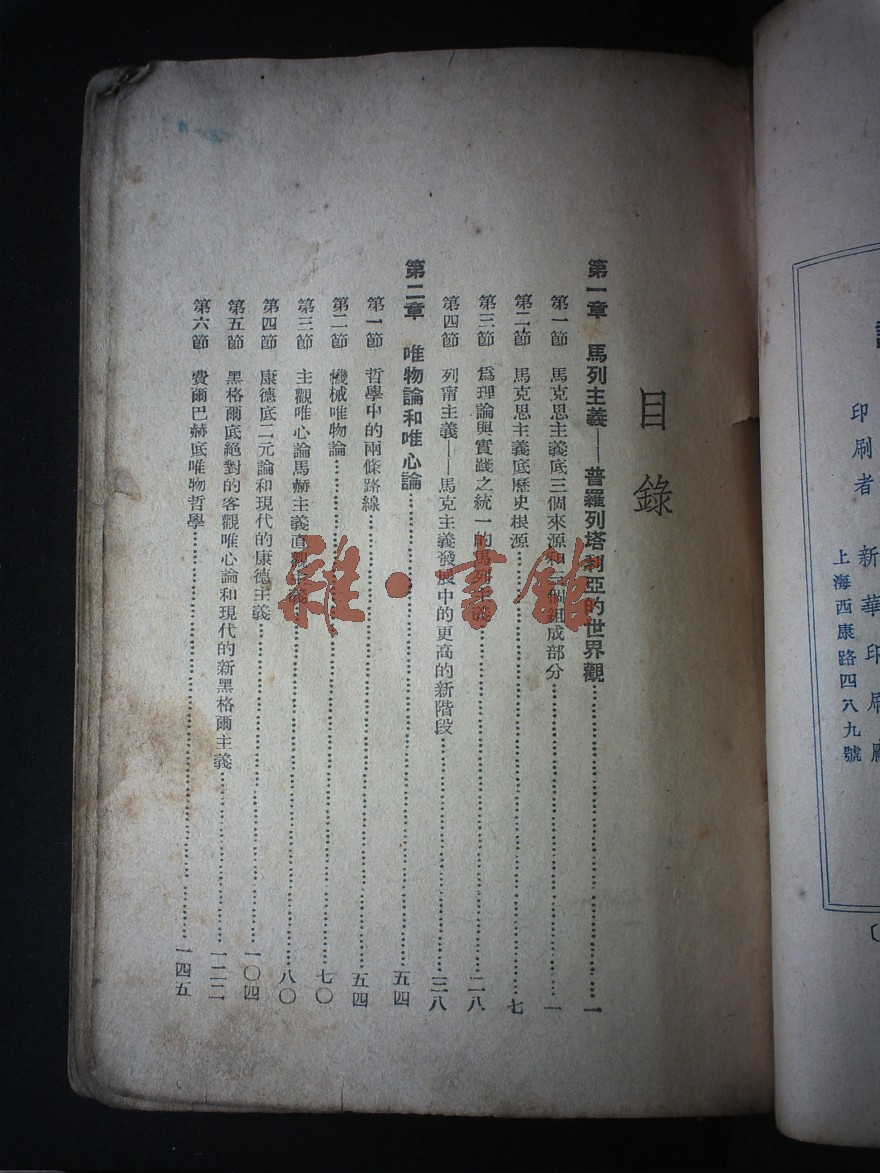 印刷者　新華印刷廠
上海西康路四八九號
目錄
第一章　馬列主義——普羅列塔利亞的世界觀……一
第一節　馬克思主義底三個來源和三個組成部分……一
第二節　馬克思主義底歷史根源……七
第三節　爲理論與實踐之統一的馬列主義……二八
第四節　列甯主義——馬克主義發展中的更高的新階段……三八
第二章　唯物論和唯心論……五四
第一節　哲學中的兩條路線……五四
第二節　機械唯物論……七〇
第三節　主觀唯心論馬赫主義直觀主義……八〇
第四節　康德底二元論和現代的康德主義……一〇四
第五節　黑格爾底絕對的客觀唯心論和現代的新黑格爾主義……一二二
第六節　費爾巴赫底唯物哲學……一四五
雜·書館